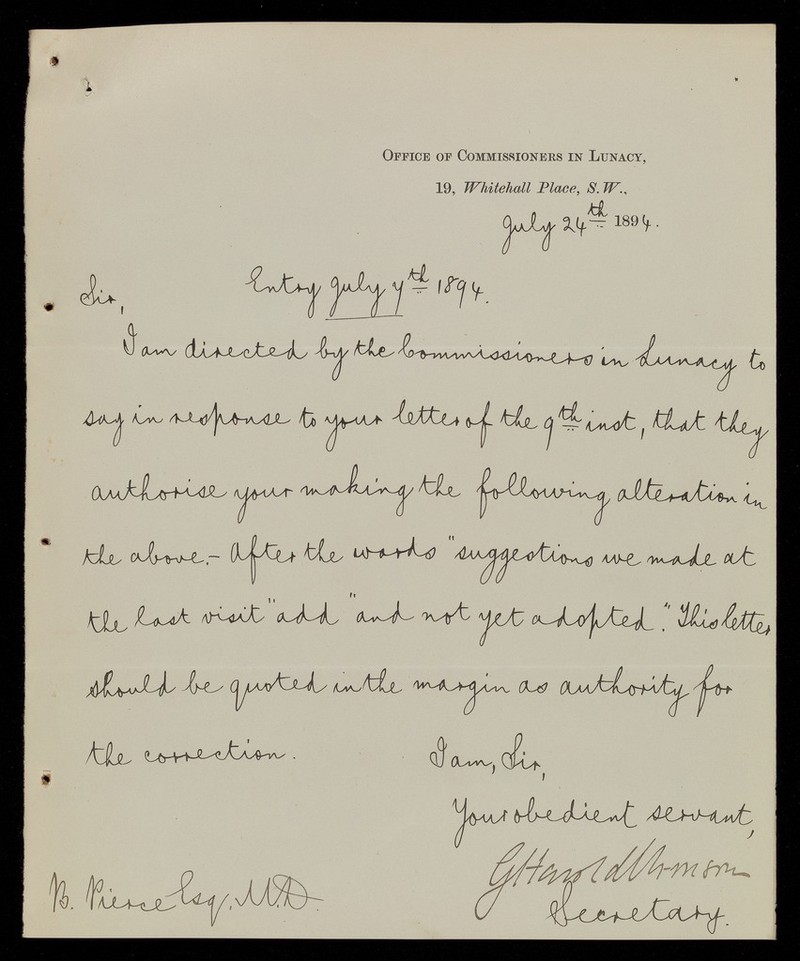 OFFICE OF COMMISSIONERS IN LUNACY,
19, Whitehall Place, S.W.,
July 24th 1894.
Entry July 7th 1894.
Sir,
I am directed by the Commissioners in Lunacy to
say in response to your letter of the 9th inst, that they
authorise your making the following alteration in
the above.- After the words "suggestions we made at
the last visit" add "and not yet adopted." This letter
should be quoted in the margin as authority for
the correction.
I am, Sir,
Your obedient servant,
G Harold Urmson
Secretary.
B. Pierce Esq. M.D.